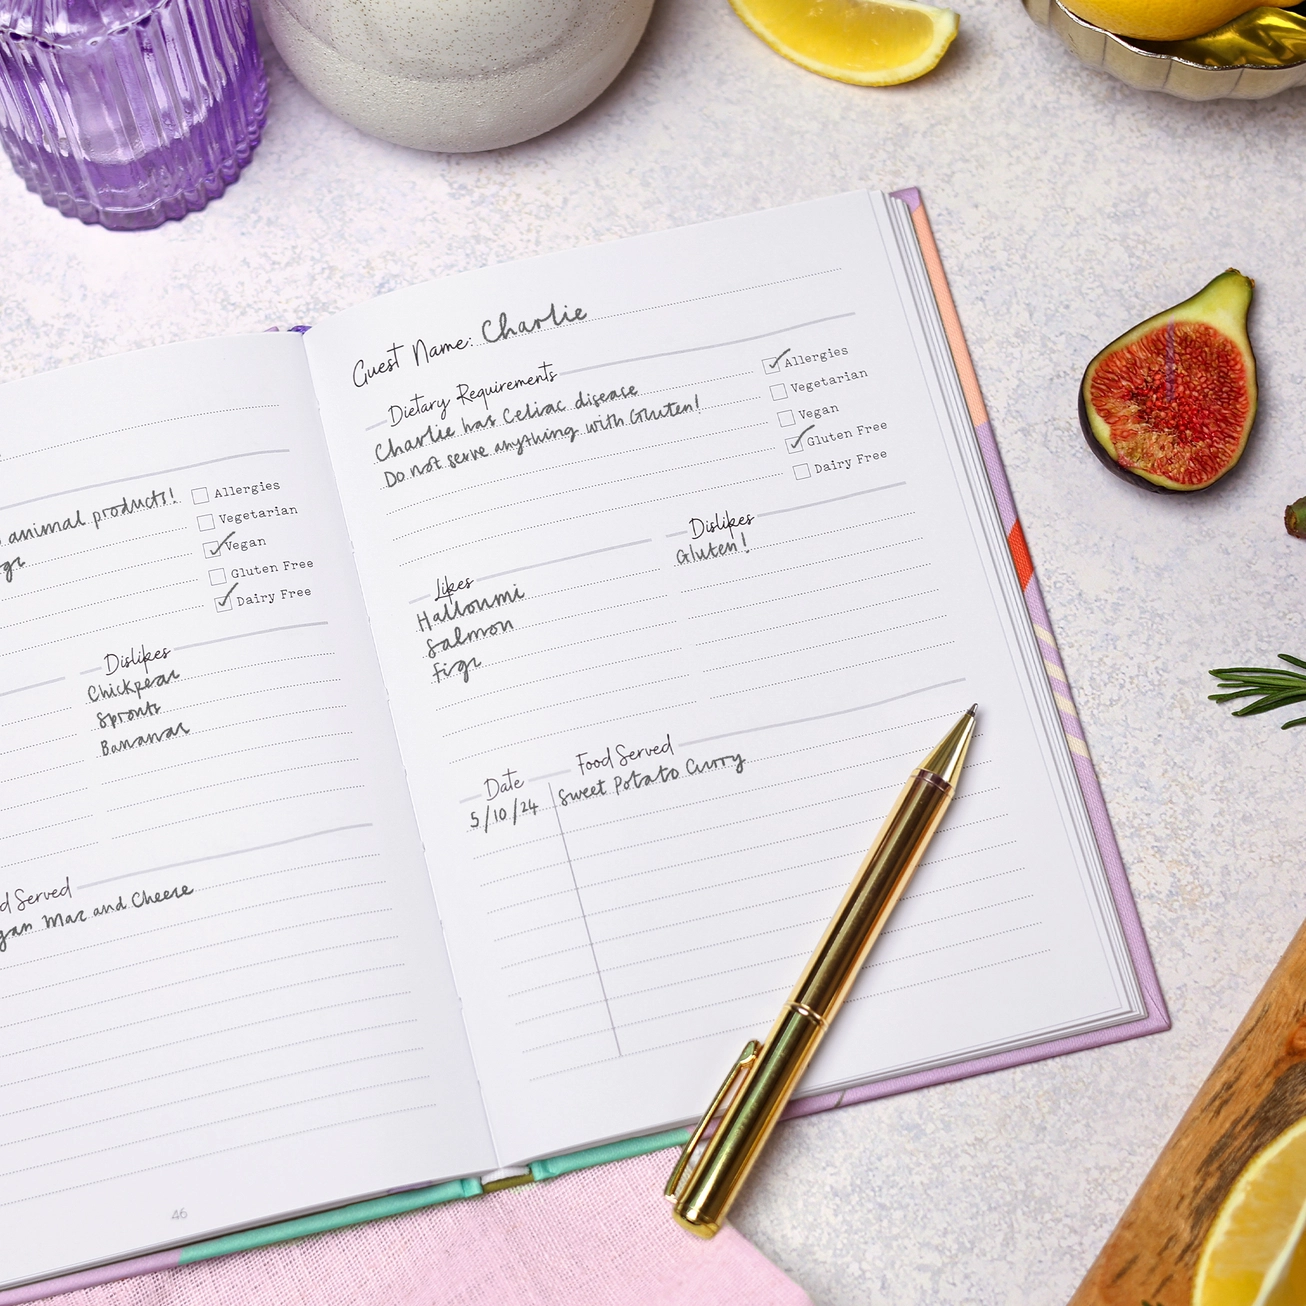 animal products!
Allergies
Vegetarian
Vegan
Gluten Free
Dairy Free
Dislikes
Chickpeas
Sprouts
Bananas
Served
Mac and Cheese
46
Guest Name: Charlie
Dietary Requirements
Charlie has Celiac disease
Do not serve anything with Gluten!
Allergies
Vegetarian
Vegan
Gluten Free
Dairy Free
Likes
Halloumi
Salmon
Figs
Dislikes
Gluten!
Date
Food Served
5/10/24 Sweet Potato Curry